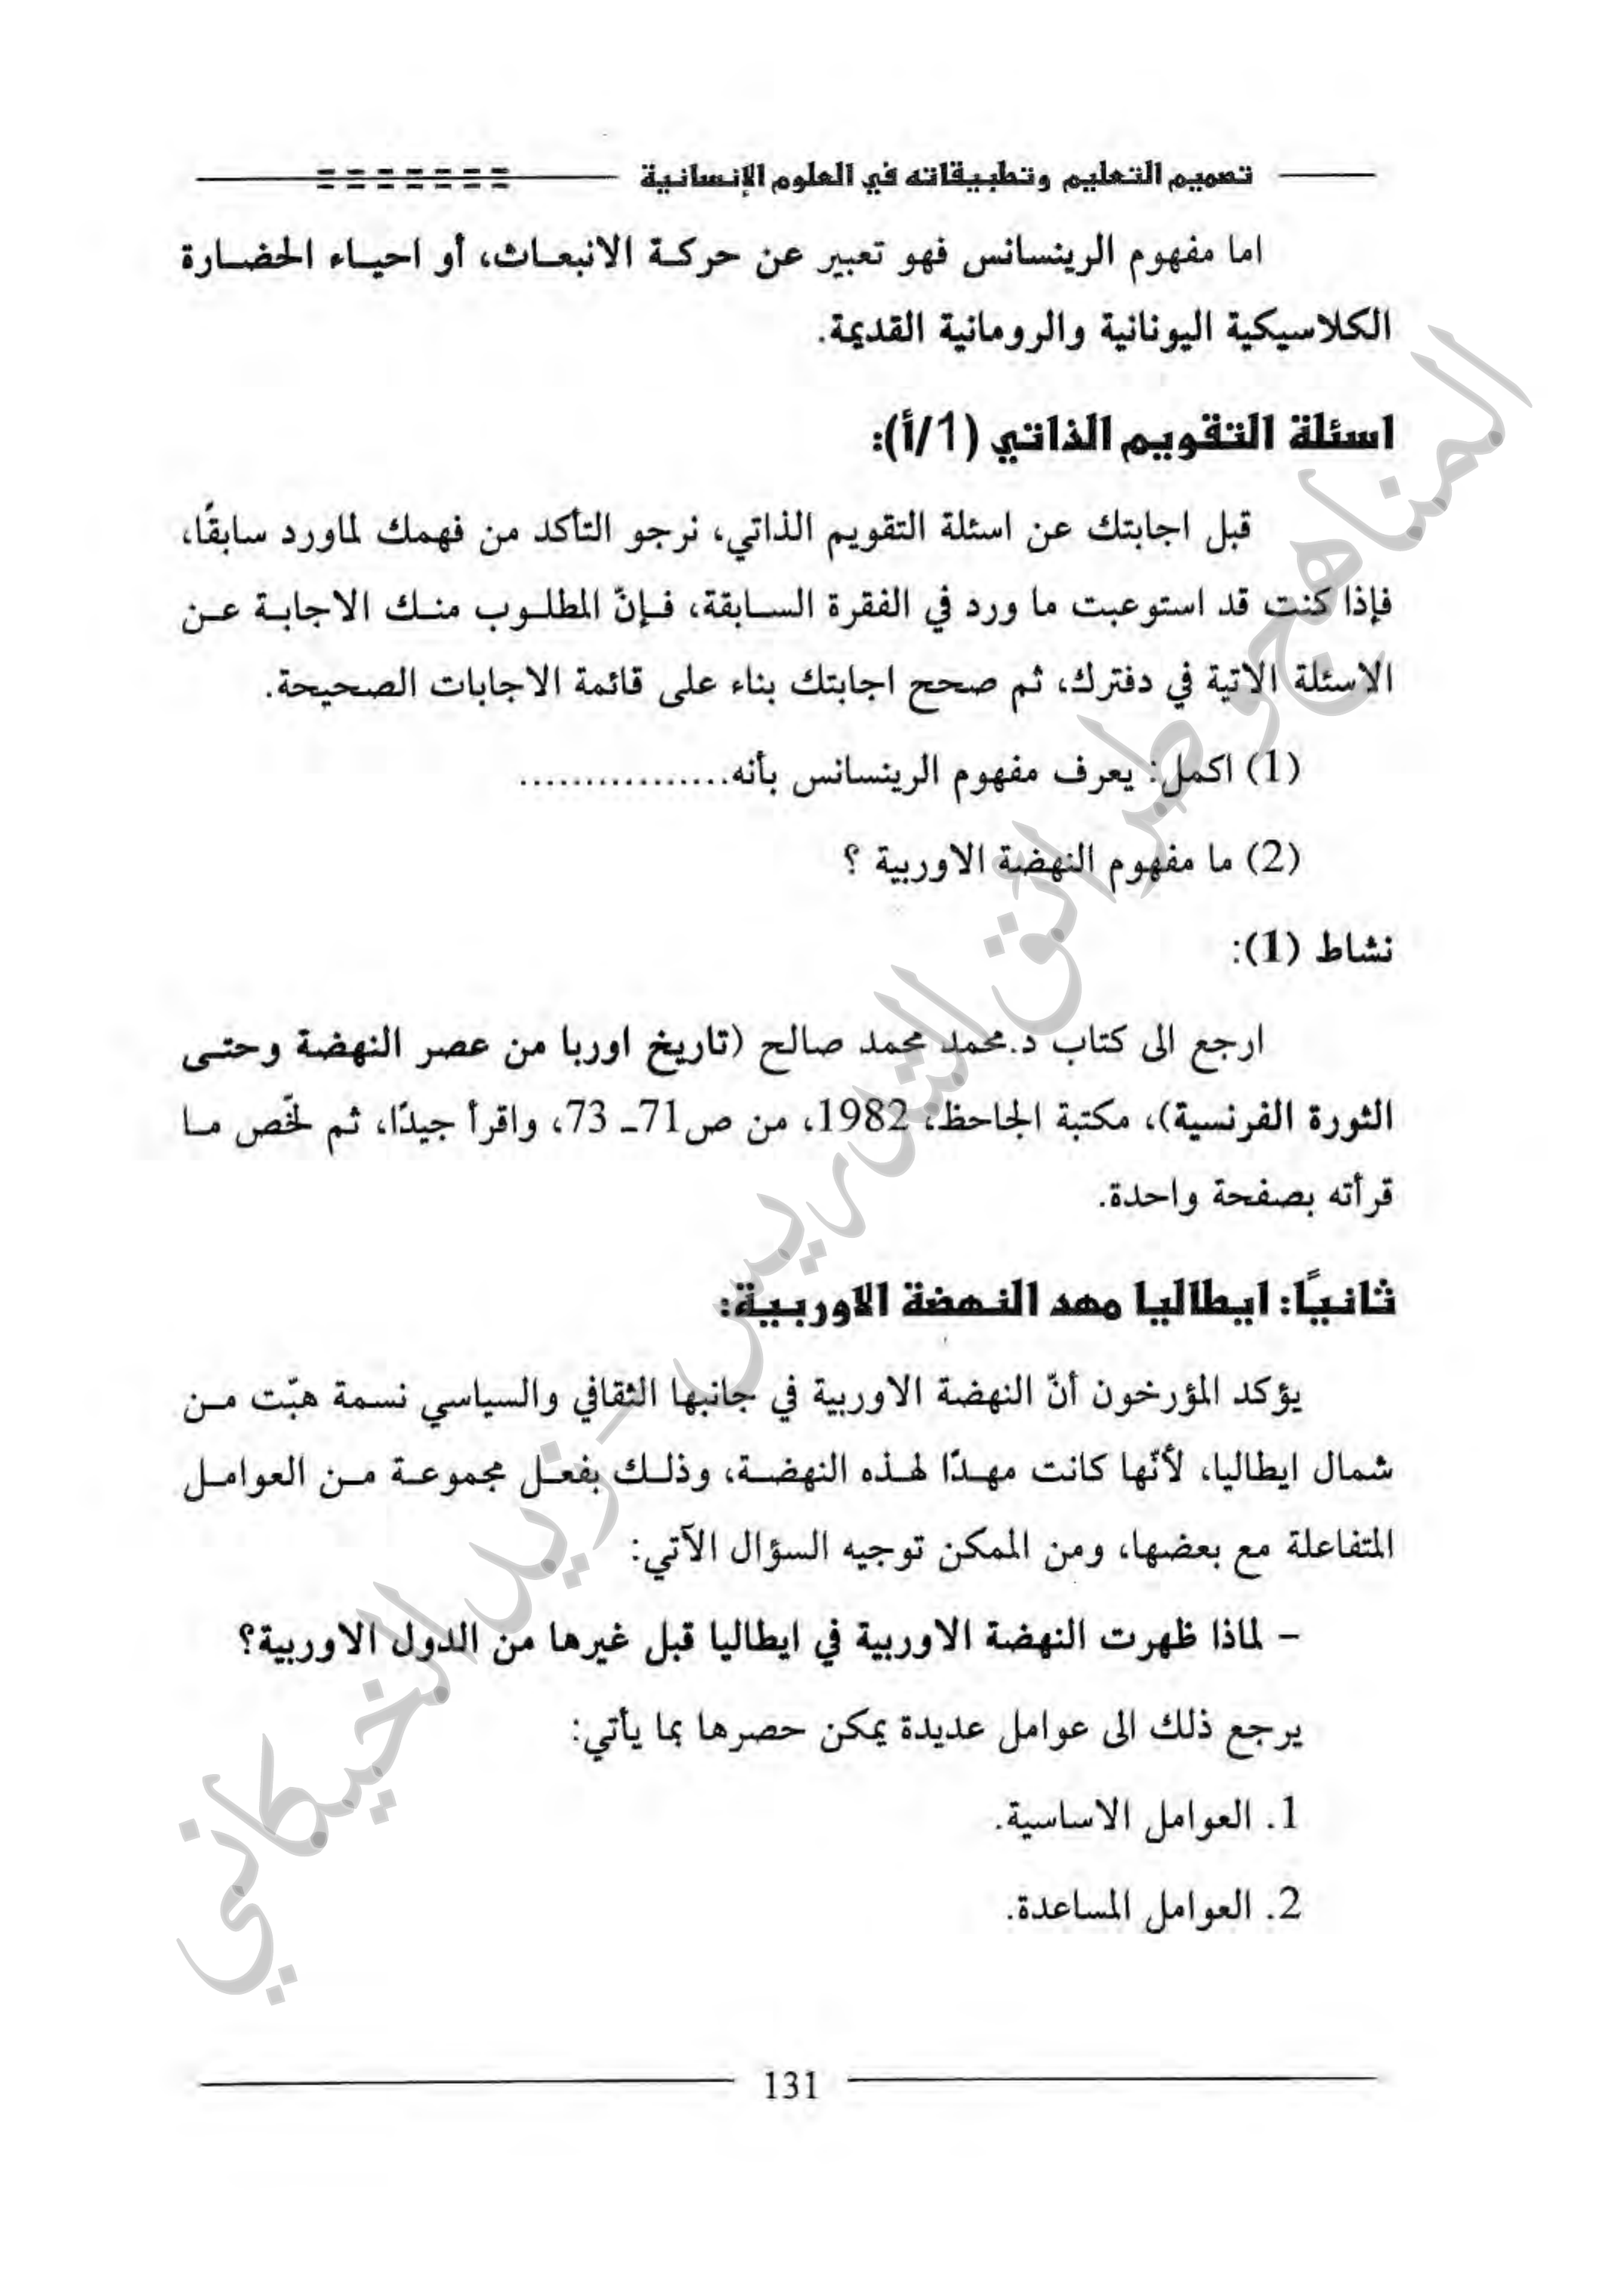 تصميم التعليم وتطبيقاته في العلوم الإنسانية
اما مفهوم الرينسانس فهو تعبير عن حركة الانبعاث، أو احياء الحضارة
الكلاسيكية اليونانية والرومانية القديمة.
اسئلة التقويم الذاتي (1/أ):
قبل اجابتك عن اسئلة التقويم الذاتي، نرجو التأكد من فهمك لماورد سابقًا،
فإذا كنت قد استوعبت ما ورد في الفقرة السابقة، فإنّ المطلوب منك الاجابة عن
الاسئلة الاتية في دفترك، ثم صحح اجابتك بناء على قائمة الاجابات الصحيحة.
(1) اكمل: يعرف مفهوم الرينسانس بأنه................
(2) ما مفهوم النهضة الاوربية ؟
نشاط (1):
ارجع الى كتاب د.محمد محمد صالح (تاريخ اوربا من عصر النهضة وحتى
الثورة الفرنسية)، مكتبة الجاحظ، 1982، من ص71ـ 73، واقرأ جيدًا، ثم لخّص ما
قرأته بصفحة واحدة.
ثانيًا: ايطاليا مهد النهضة الاوربية:
يؤكد المؤرخون أنّ النهضة الاوربية في جانبها الثقافي والسياسي نسمة هبّت من
شمال ايطاليا، لأنّها كانت مهدًا لهذه النهضة، وذلك بفعل مجموعة من العوامل
المتفاعلة مع بعضها، ومن الممكن توجيه السؤال الآتي:
– لماذا ظهرت النهضة الاوربية في ايطاليا قبل غيرها من الدول الاوربية؟
يرجع ذلك الى عوامل عديدة يمكن حصرها بما يأتي:
1. العوامل الاساسية.
2. العوامل المساعدة.
131
المناهج وطرائق التدريس - زيد الخيكاني